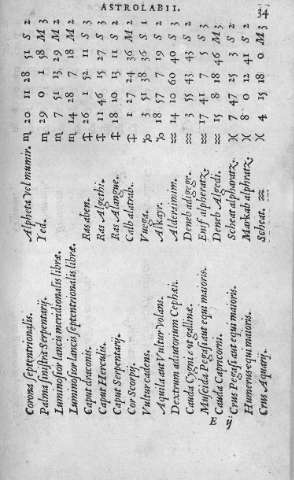 ASTROLABII. 34
Corona septentrionalis. Alpheta vel munir. ♏ 20 11 28 51 S 2
Palma sinistra Serpentarij. Yed. ♏ 29 0 1 58 M 3
Luminosior lancis meridionalis libræ. ♏ 7 51 13 29 M 2
Luminosior lancis septentrionalis libræ. ♏ 14 28 7 18 M 2
Caput draconis. Rasaben. ♐ 26 1 52 11 S 3
Caput Herculis. Ras Algethi. ♐ 11 46 15 27 S 3
Caput Serpentarij. Ras Alangue. ♐ 18 10 13 11 S 2
Cor Scorpij. Calb alatrab. ♐ 1 27 24 36 M 2
Vultur cadens. Vuega. ♑ 3 51 38 36 S 1
Aquila aut Vultur volans. Alkayr. ♑ 18 57 7 19 S 2
Dextrum adiutorium Cephæi. Alderaimim. ♒ 14 10 60 40 S 3
Cauda Cygni gallinæ. Deneb ♒ 3 55 43 43 S 2
Muscida Pegasi aut equi maioris. Enif alpheratz. ♒ 17 41 7 5 S 3
Cauda Capricorni. Deneb Algedi. ♒ 15 8 18 46 M 3
Crus Pegasi aut equi maioris. Scheat alpharatz. ♓ 7 47 25 3 S 2
Humerus equi maioris. Markab alphratz. ♓ 8 0 12 41 S 2
Crus Aquarij. Scheat. ♒ ♓ 4 15 18 0 M 3
E ij